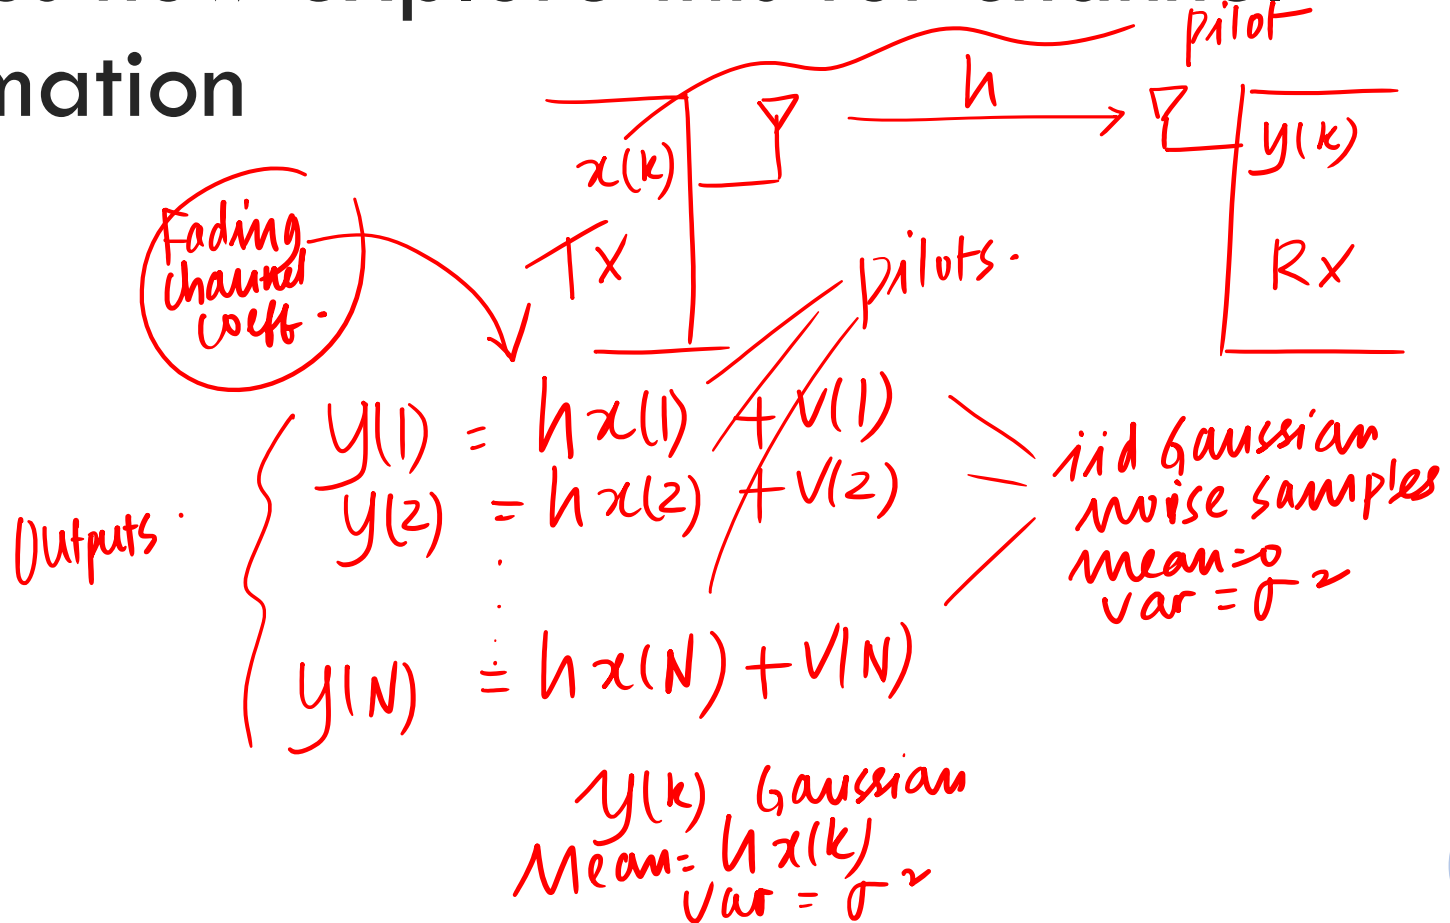 mation
pilot
h
x(k)
y(k)
Tx
Rx
Fading
channel
coeff.
pilots.
y(1) = hx(1) + V(1)
y(2) = hx(2) + V(2)
⋮
y(N) = hx(N) + V(N)
Outputs
iid Gaussian
noise samples
mean=0
var = σ²
y(k) Gaussian
Mean = hx(k)
var = σ²